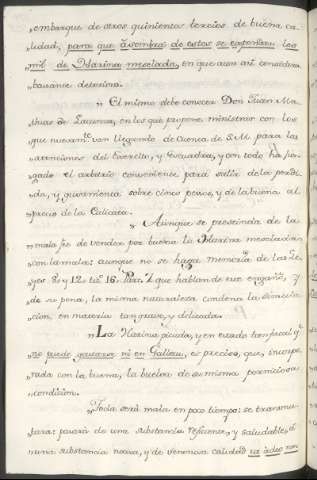 embarque de otros quinientos tercios de buena ca-
lidad, para que à sombra de estos se exporten los
mil de Harina mesclada, en que aun asi considera
bastante deterioro.
„ El mismo debe conocer Don Juan Ma-
thias de Lacunza, en los que propone ministrar con los
que nuevam.te van llegando de cuenta de S.M. para las
atenciones del Exercito, y Esquadra, y con todo ha ju-
gado el arbitrio conveniente para salir de la perdi-
da, y
sobre cinco pesos, y de la ruina al
precio de la Calicata.
„ Aunque se prescinda de la
mala fe de vender por buena la Harina mesclada
con la mala: aunque no se haga memoria de las Le-
yes 8. y 12. tit.o 16. Part. 7. que hablan de este engaño, y
de su pena, la misma naturaleza condena la
cion, en materia tan grave, y delicada.
„ La Harina picada, y en estado tan fatal q.e
no puede gastarse ni en Galleta, es preciso, que, incorpo-
rada con la buena, la buelva de su misma perniciosa
condicion.
„ Toda será mala en poco tiempo: se transmu-
tara: pasará de una substancia
, y saludable, á
una substancia nociva, y de venenosa calidad